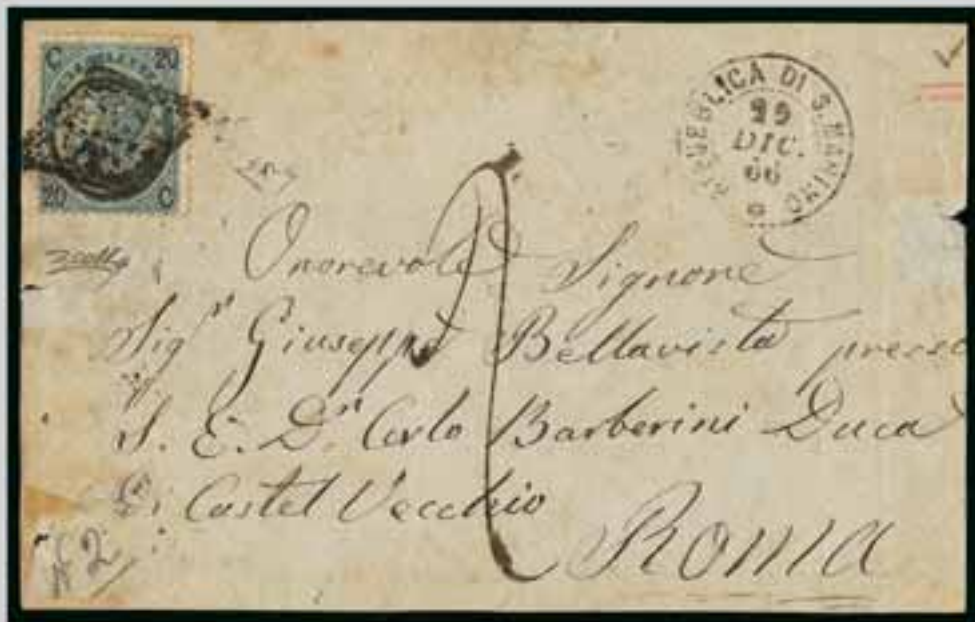 C 20
20 C
REPUBBLICA DI S. MARINO
29
DIC.
66
Onorevole Signore
Sigʳ Giuseppe Bellavista presso
S. E. Dⁿ Carlo Barberini Duca
di Castel Vecchio
Roma
N 2